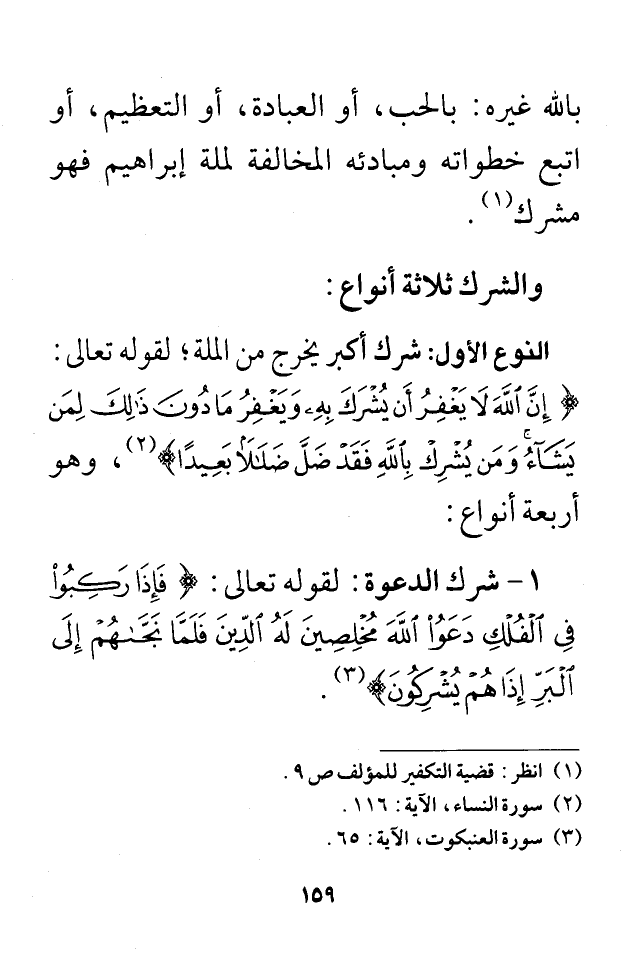 بالله غيره: بالحب، أو العبادة، أو التعظيم، أو
اتبع خطواته ومبادئه المخالفة لملة إبراهيم فهو
مشرك(١).
والشرك ثلاثة أنواع:
النوع الأول: شرك أكبر يخرج من الملة؛ لقوله تعالى:
﴿إِنَّ ٱللَّهَ لَا يَغْفِرُ أَن يُشْرَكَ بِهِۦ وَيَغْفِرُ مَا دُونَ ذَٰلِكَ لِمَن
يَشَآءُ ۚ وَمَن يُشْرِكْ بِٱللَّهِ فَقَدْ ضَلَّ ضَلَٰلًۢا بَعِيدًا﴾(٢)، وهو
أربعة أنواع:
١- شرك الدعوة: لقوله تعالى: ﴿فَإِذَا رَكِبُوا۟
فِى ٱلْفُلْكِ دَعَوُا۟ ٱللَّهَ مُخْلِصِينَ لَهُ ٱلدِّينَ فَلَمَّا نَجَّىٰهُمْ إِلَى
ٱلْبَرِّ إِذَا هُمْ يُشْرِكُونَ﴾(٣).
(١) انظر: قضية التكفير للمؤلف ص٩.
(٢) سورة النساء، الآية: ١١٦.
(٣) سورة العنبكوت، الآية: ٦٥.
١٥٩